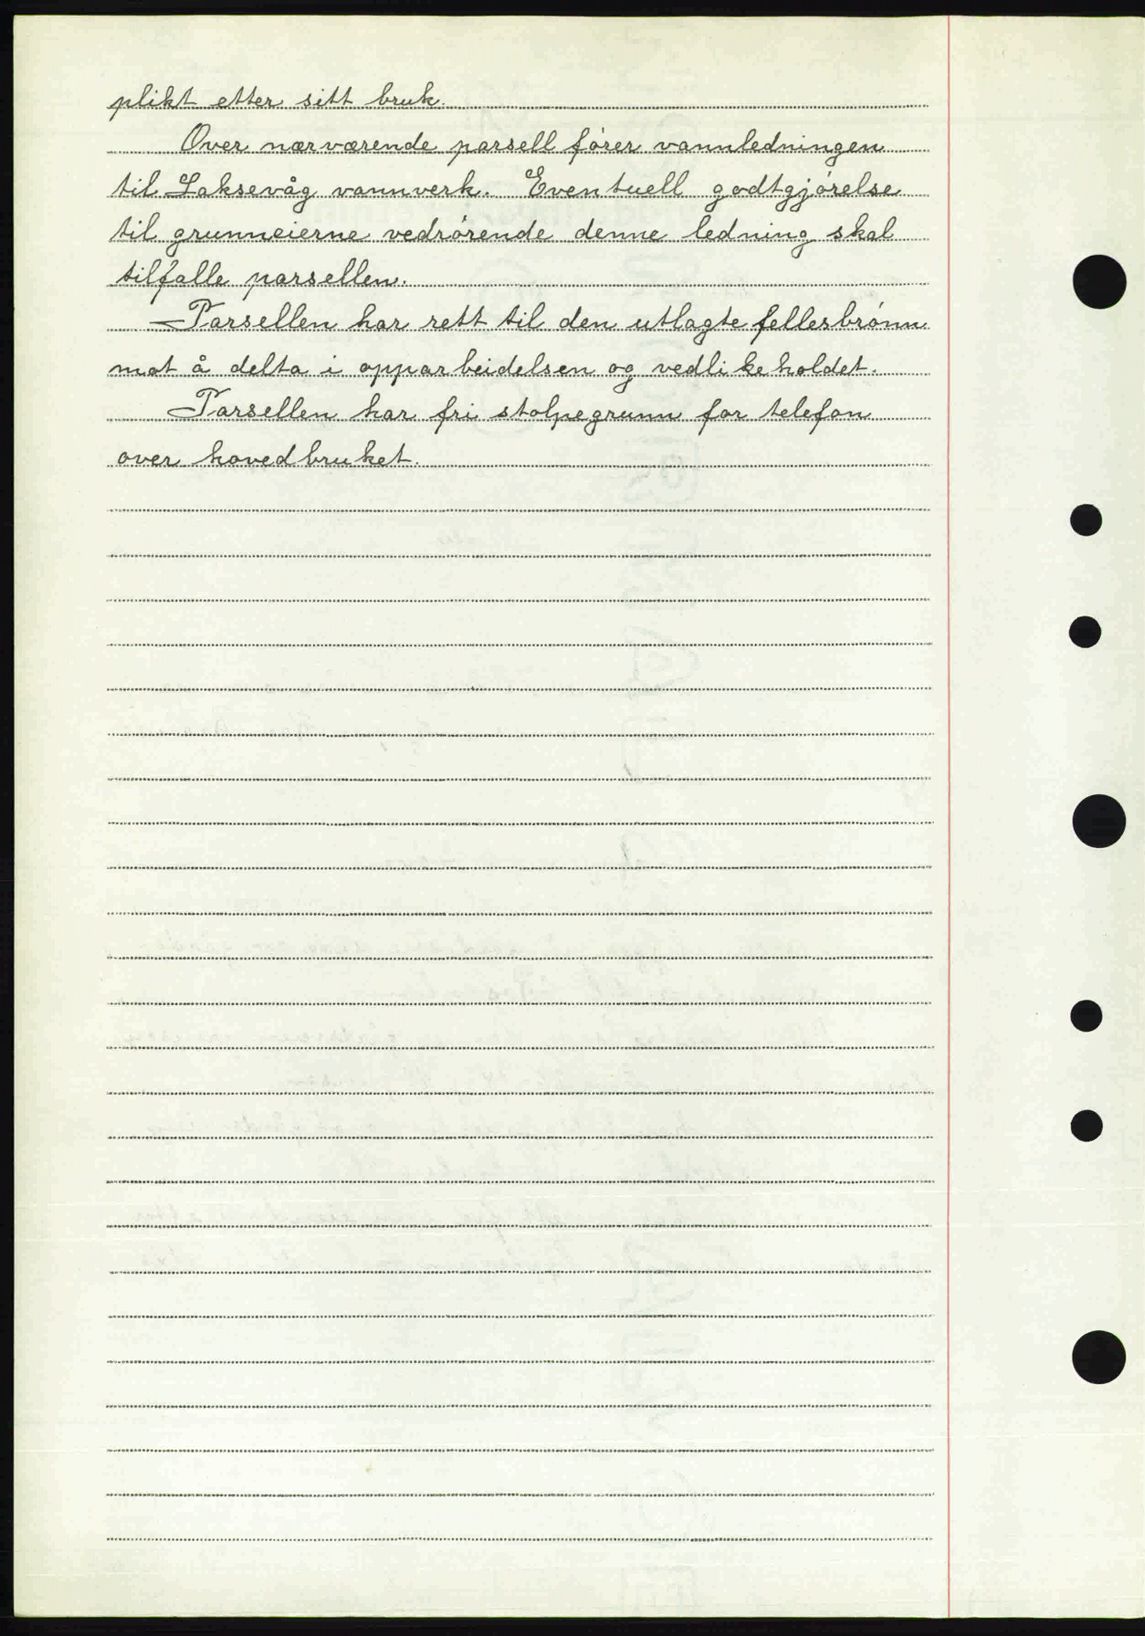 plikt etter sitt bruk.
Over nærværende parsell fører vannledningen
til Laksevåg vannverk. Eventuell godtgjørelse
til grunneierne vedrørende denne ledning skal
tilfalle parsellen.
Parsellen har rett til den utlagte fellesbrønn
mot å delta i opparbeidelsen og vedlikeholdet.
Parsellen har fri stolpegrunn for telefon
over hovedbruket.